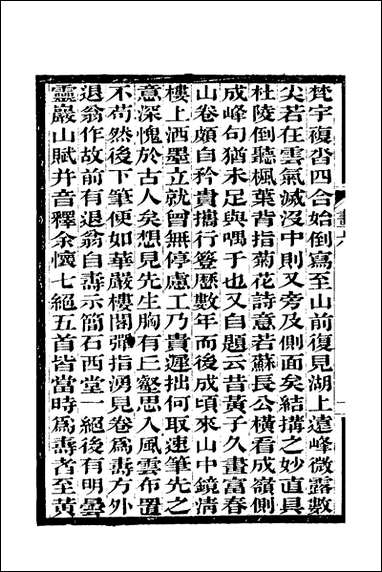 梵宇複沓四合始倒寫至山前復見湖上遠峰微露數
尖若在雲氣滅沒中則又旁及側面矣結搆之妙直具
杜陵倒聽楓葉背指菊花詩意若蘇長公橫看成嶺側
成峰句猶未足與喁于也又自題云昔黃子久畫富春
山卷頗自矜貴攜行簦歷數年而後成頃來山中鏡清
樓上洒墨立就曾無停慮工乃貴遲拙何取速筆先之
意深愧於古人矣想見先生胸有丘壑思入風雲布置
不苟然後下筆便如華嚴樓閣彈指湧見卷爲壽方外
退翁作故前有退翁自壽示簡石西堂一絕後有明曇
靈巖山賦幷音釋余懷七絕五首皆當時爲壽者至黃